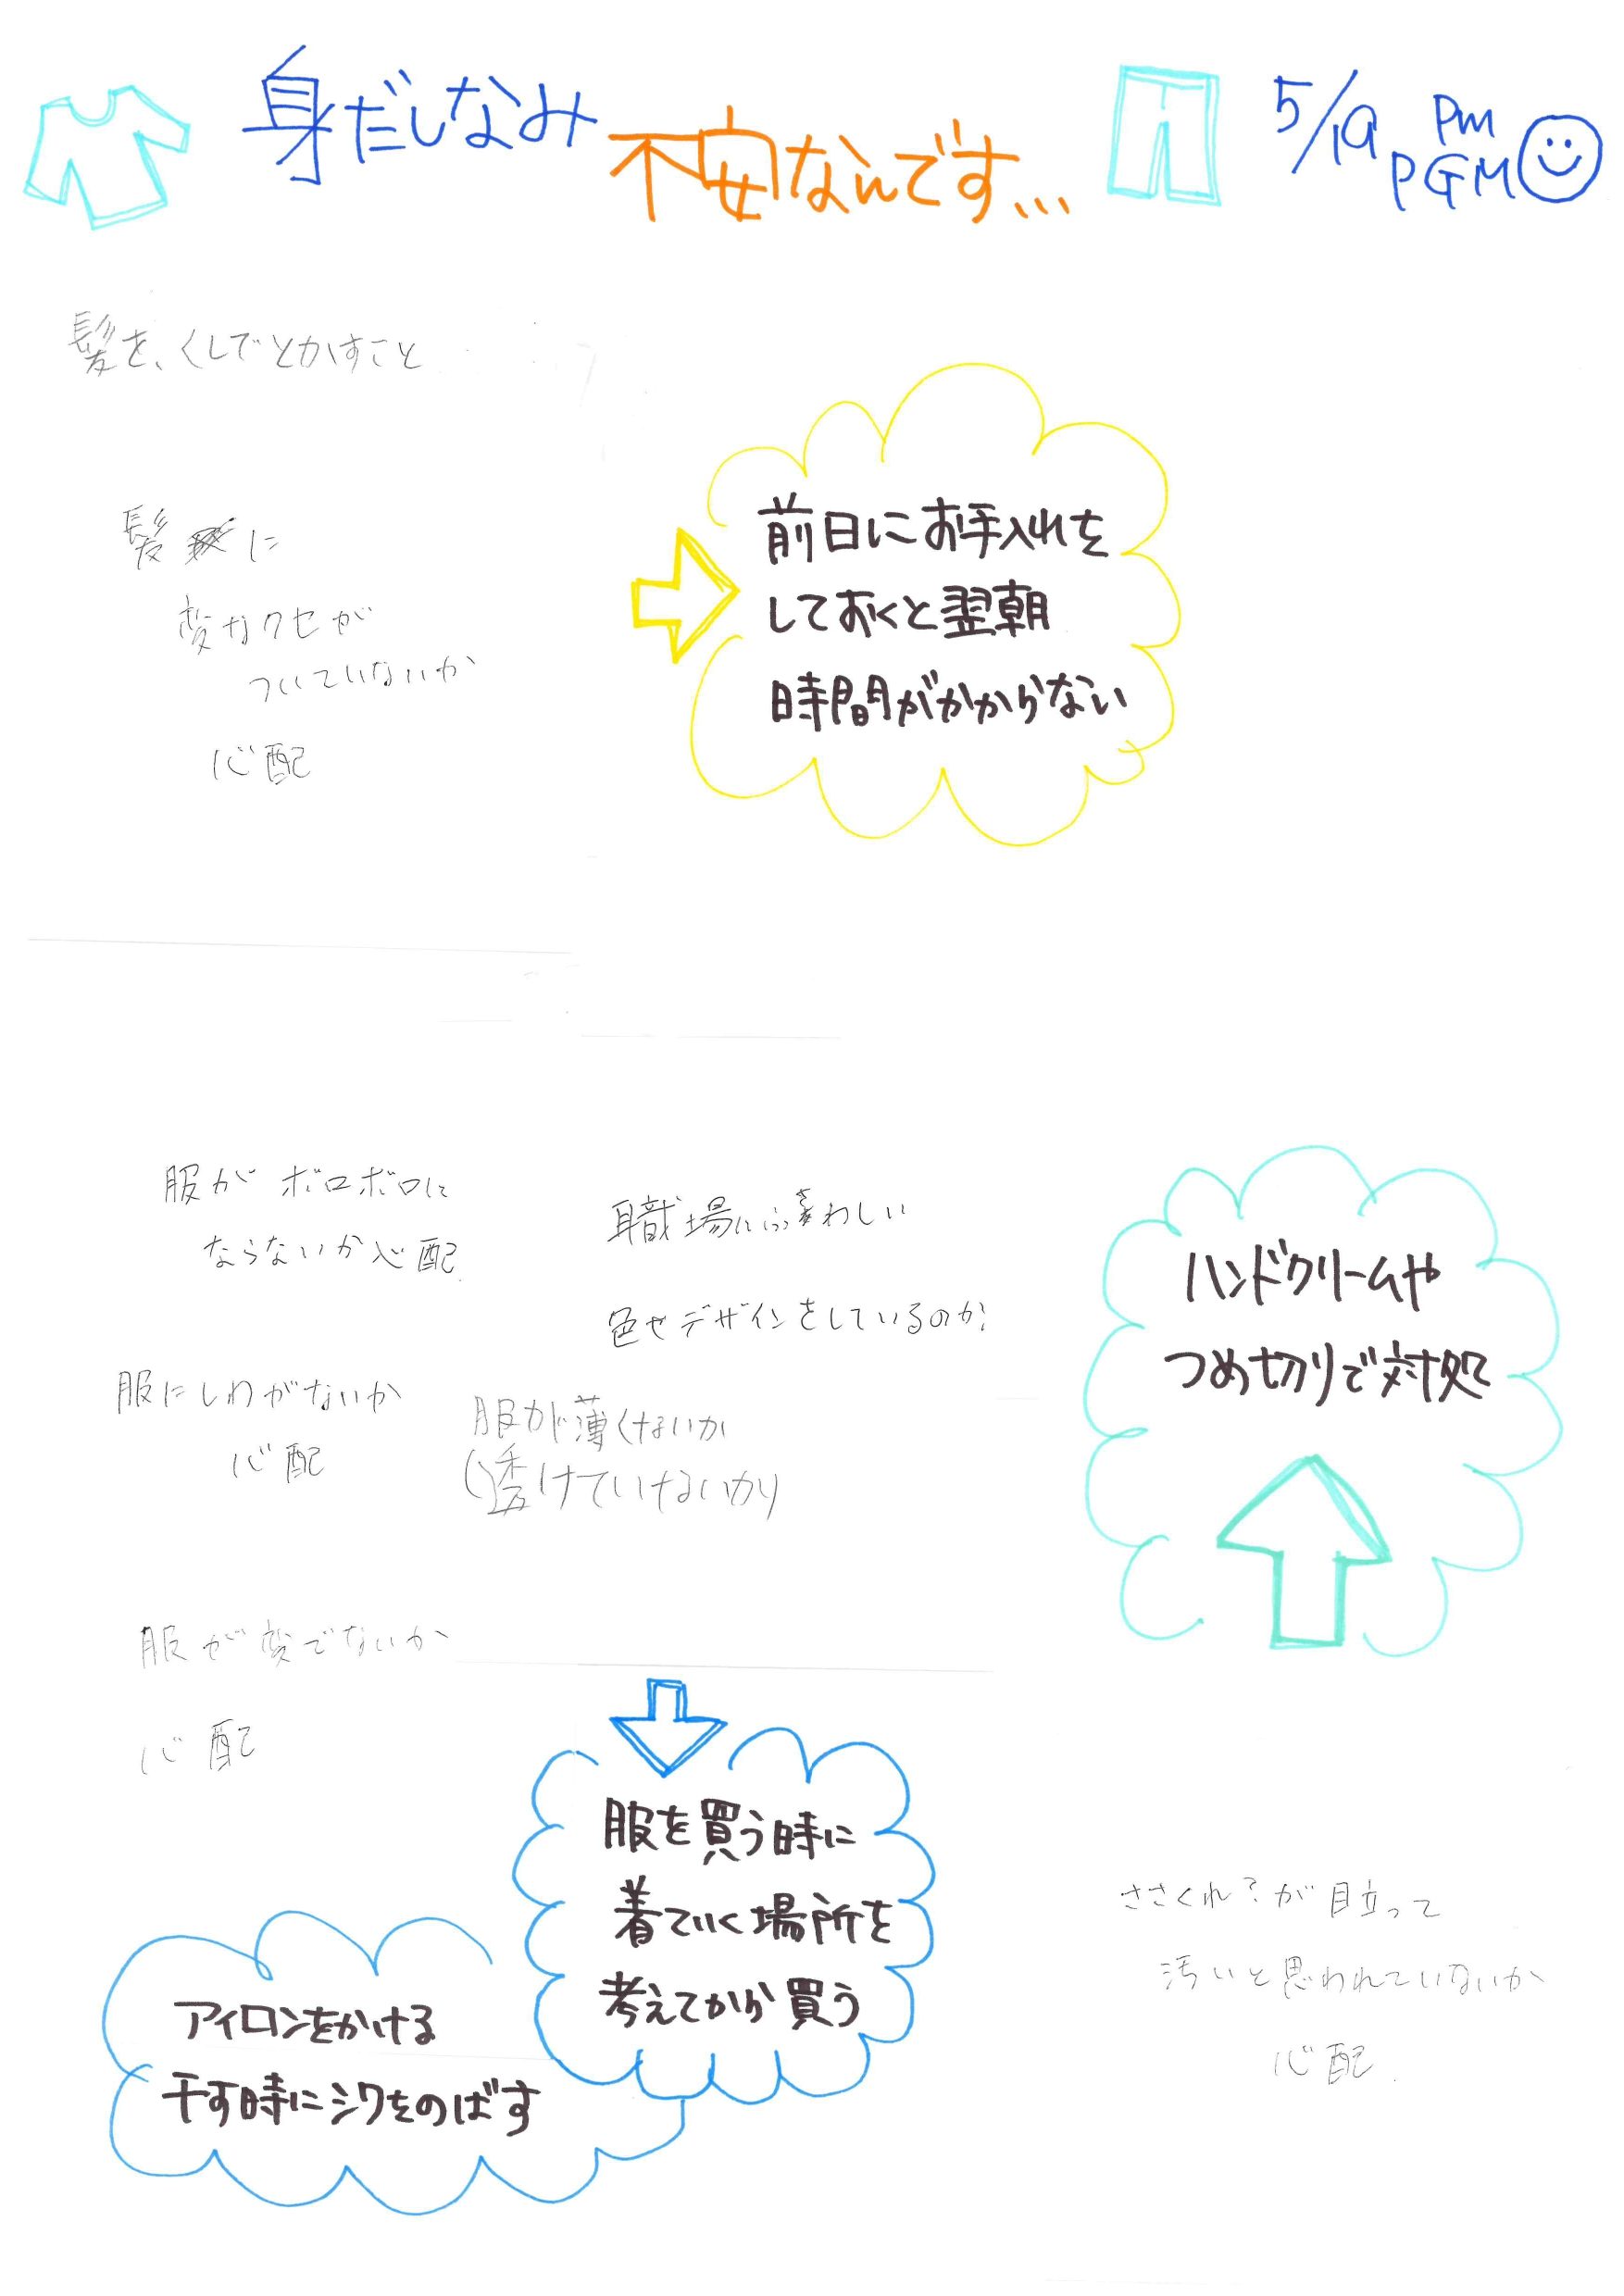 身だしなみ
不安なんです…
5/19 PM
PGM
髪を、くしでとかすこと
髪に
変なクセが
ついていないか
心配
前日にお手入れを
しておくと翌朝
時間がかからない
服がボロボロに
ならないか心配
職場にふさわしい
色やデザインをしているのか
服にしわがないか
心配
服が薄くないか
(透けていないか)
服が変でないか
心配
ハンドクリームや
つめ切りで対処
服を買う時に
着ていく場所を
考えてから買う
アイロンをかける
干す時にシワをのばす
ささくれ?が目立って
汚いと思われていないか
心配